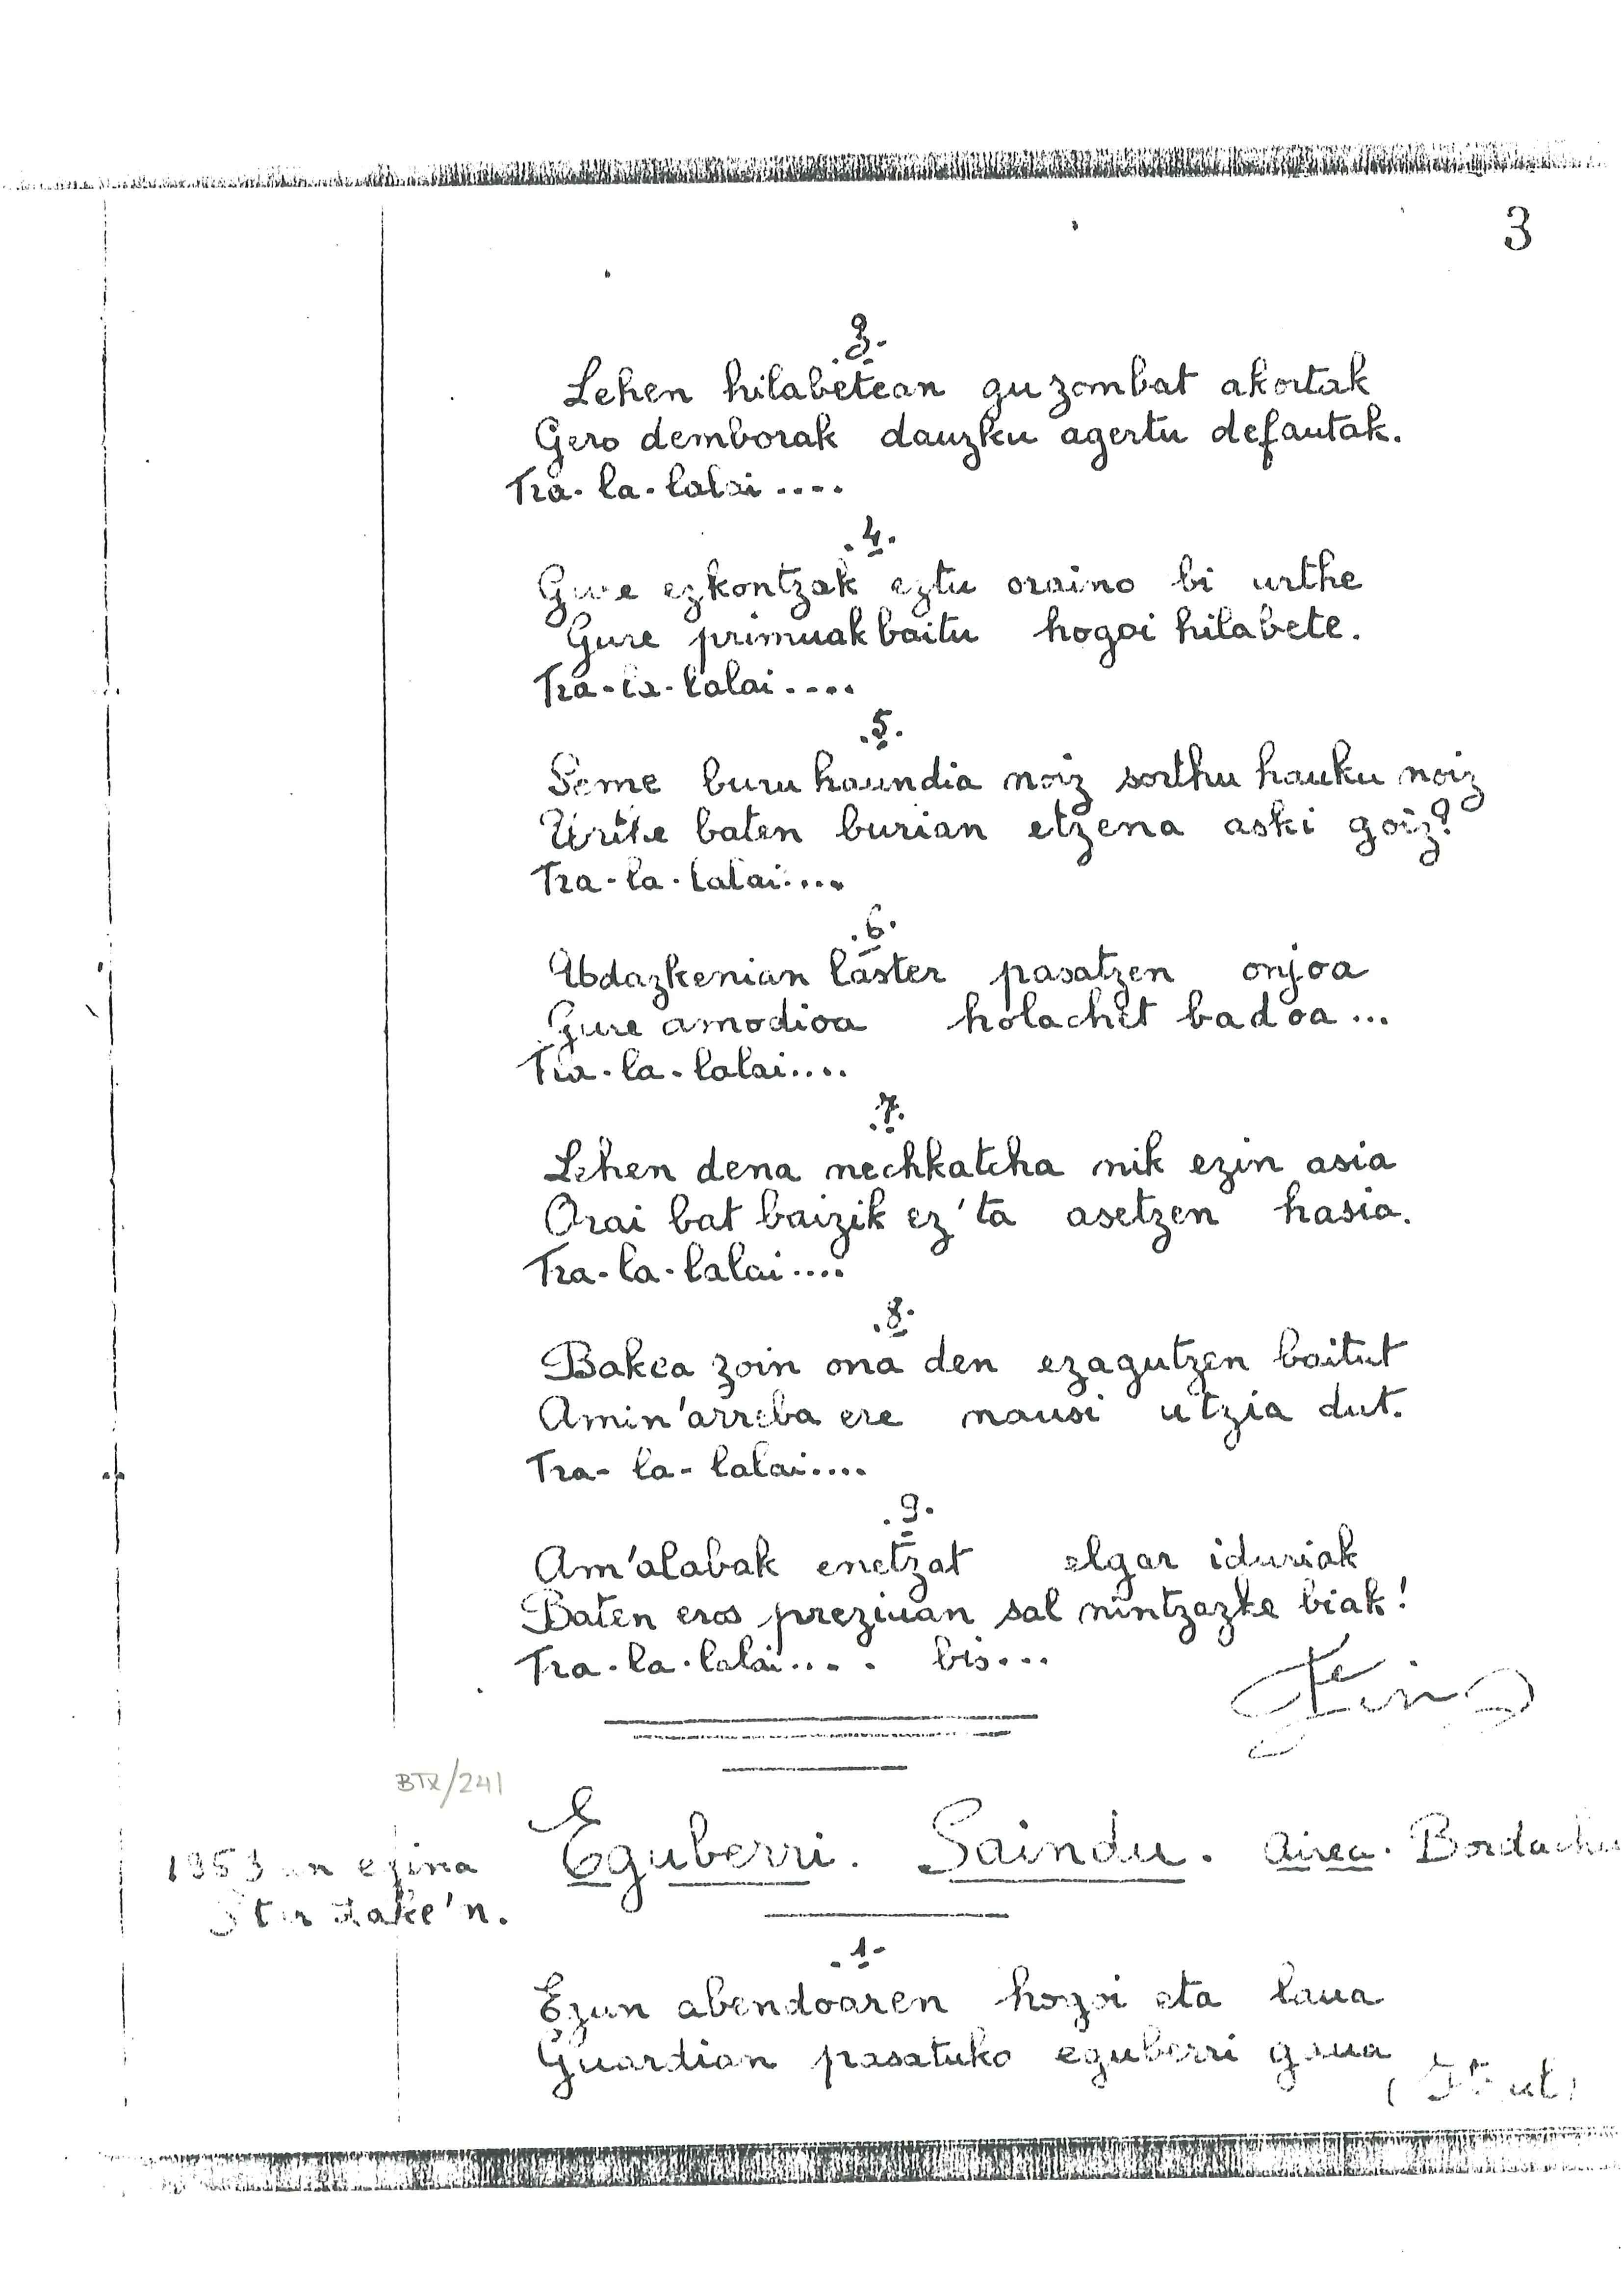 3
.3.
Lehen hilabetean gu zombat akortak
Gero demborak dauzku agertu defautak.
Tra-la-lalai....
.4.
Gure ezkontzak eztu oraino bi urthe
Gure primuak baitu hogoi hilabete.
Tra-la-lalai....
.5.
Seme buru haundia noiz sorthu hauku noiz
Urthe baten burian etzena aski goiz?
Tra-la-lalai....
.6.
Udazkenian laster pasatzen onjoa
Gure amodioa holachet badoa...
Tra-la-lalai....
.7.
Lehen dena nechkatcha nik ezin asia
Orai bat baizik ez'ta asetzen hasia.
Tra-la-lalai....
.8.
Bakea zoin ona den ezagutzen baitut
Amin'arreba ere nausi utzia dut.
Tra-la-lalai....
.9.
Am'alabak enetzat elgar iduriak
Baten eros preziuan sal nintzazke biak!
Tra-la-lalai.... bis...
BTX/241
Eguberri. Saindu. Airea. Bordachu
1953 an egina
.1.
Egun abendoaren hogoi eta laua
Guardian pasatuko eguberri gaua